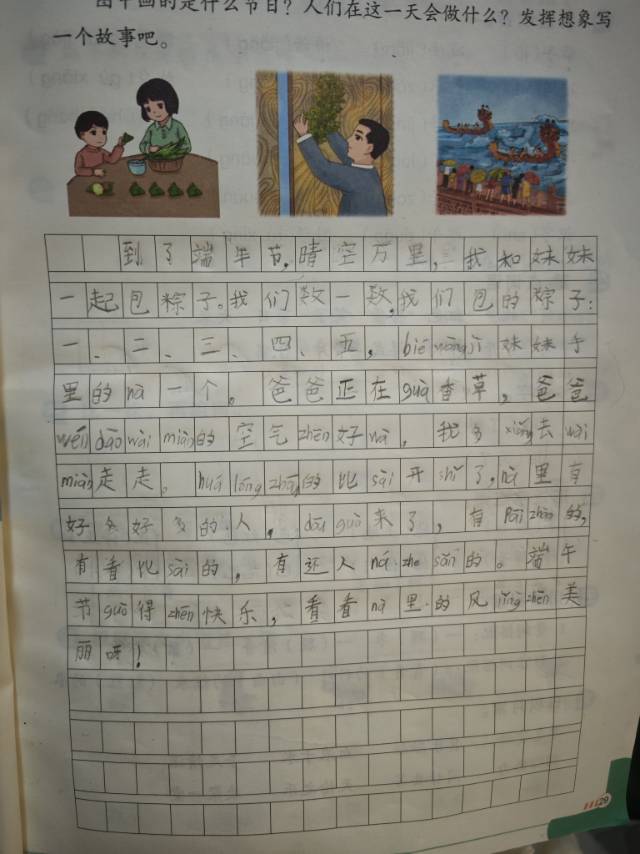 图中画的是什么节日？人们在这一天会做什么？发挥想象写
一个故事吧。
到了端午节，晴空万里，我和妹妹
一起包粽子。我们数一数，我们包的粽子：
一、二、三、四、五，bié wàng jì 妹妹手
里的 nà 一个。爸爸正在 guà 香草，爸爸
wén dào wài miàn 的空气 zhēn 好 nà，我多 xiǎng 去 wài
miàn 走走。huá lóng zhōu 的比 sài 开 shǐ 了，nà 里有
好多好多的人，dōu guò 来了，有 pāi zhào 的，
有看比 sài 的，有还人 ná zhe sǎn 的。端午
节 guò 得 zhēn 快乐，看看 nà 里的风 jǐng zhēn 美
丽呀！
29